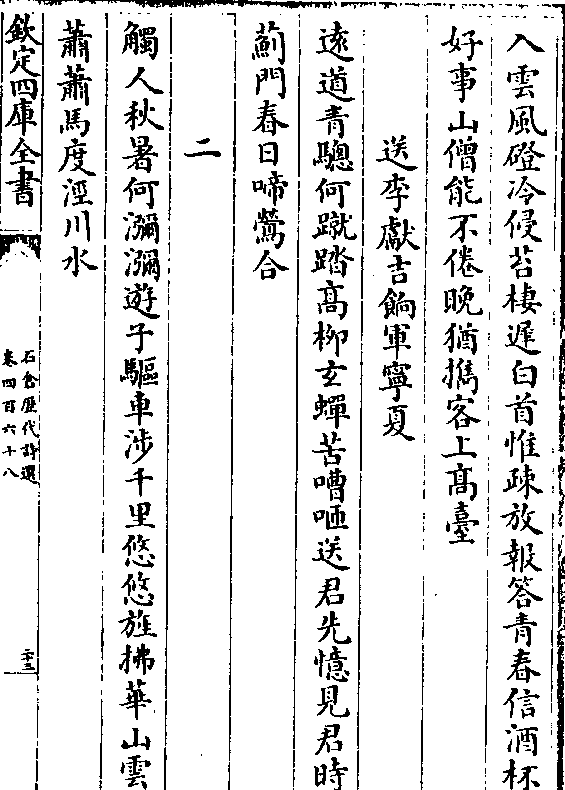 入雲風磴冷侵苔棲遲白首惟疎放報答青春信酒杯
好事山僧能不倦晚猶攜客上髙臺
送李獻吉餉軍寧夏
逺道青驄何蹴踏髙栁玄蟬苦嘈咂送君先憶見君時
薊門春日啼鶯合
二
觸人秋暑何瀰瀰遊子驅車涉千里悠悠旌拂華山雲
蕭蕭馬度涇川水
欽定四庫全書
石倉歴代詩選
卷四百六十八
二十三